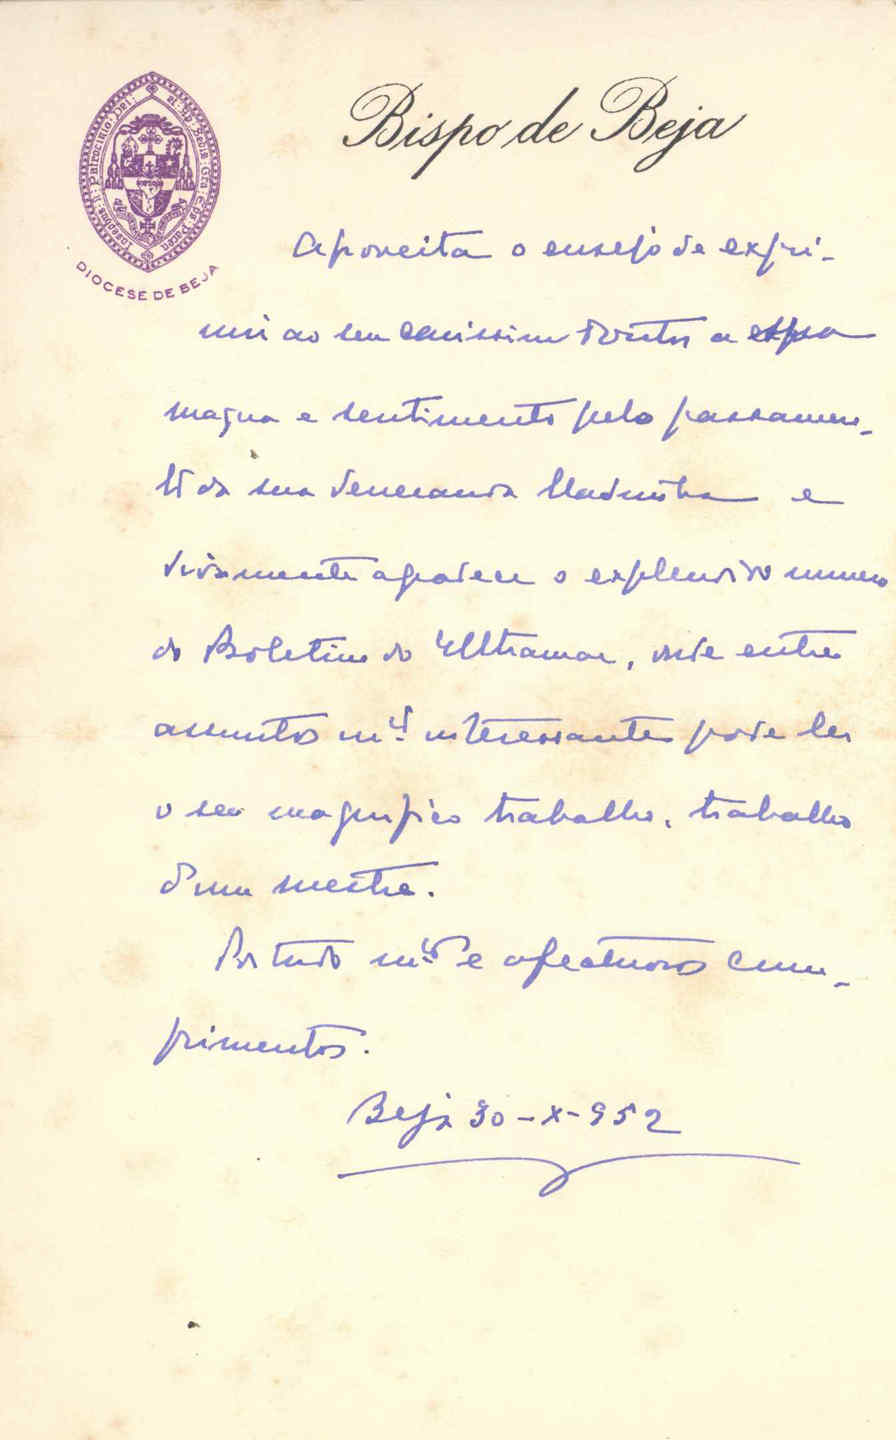 Bispo de Beja
DIOCESE DE BEJA
Aproveita o ensejo de expri-
mir ao seu carissimo Doutor a
magua e sentimento pelo passamen-
to da sua veneranda Madrinha e
vivamente agradece o explendido numero
do Boletim do Ultramar, onde entre
assuntos m.tº interessantes pode ler
o seu magnifico trabalho, trabalho
d'um mestre.
Por tudo m.tos e afectuosos cum-
primentos.
Beja 30-X-952